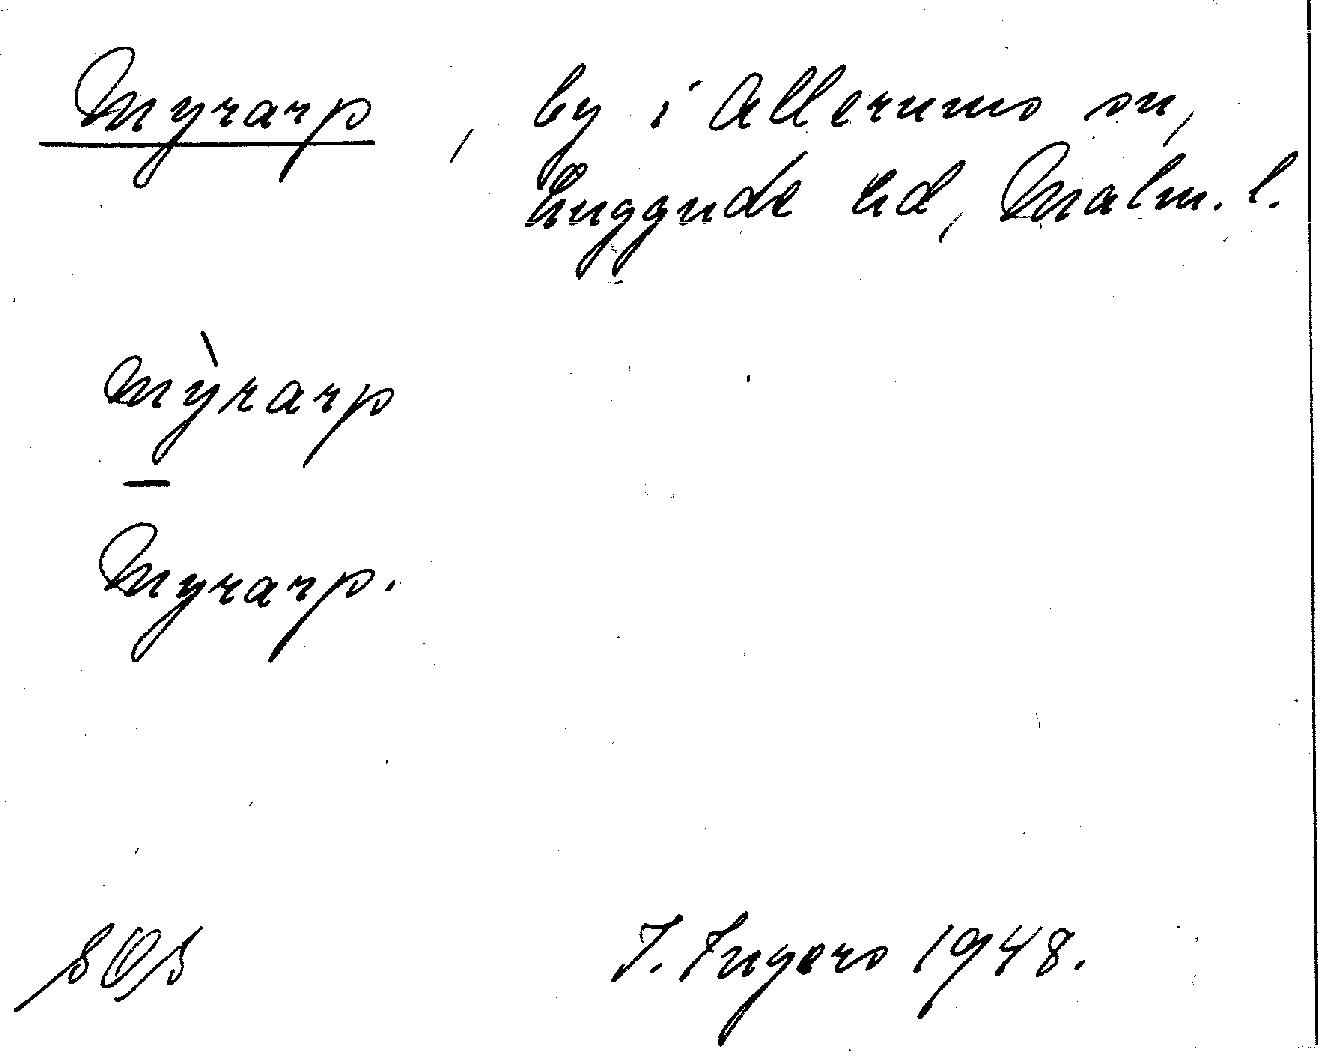 Myrarp, by i Allerums sn,
Luggude hd, Malm. l.
Mỳrarp
—
Myrarp.
SOS
I. Ingers 1948.